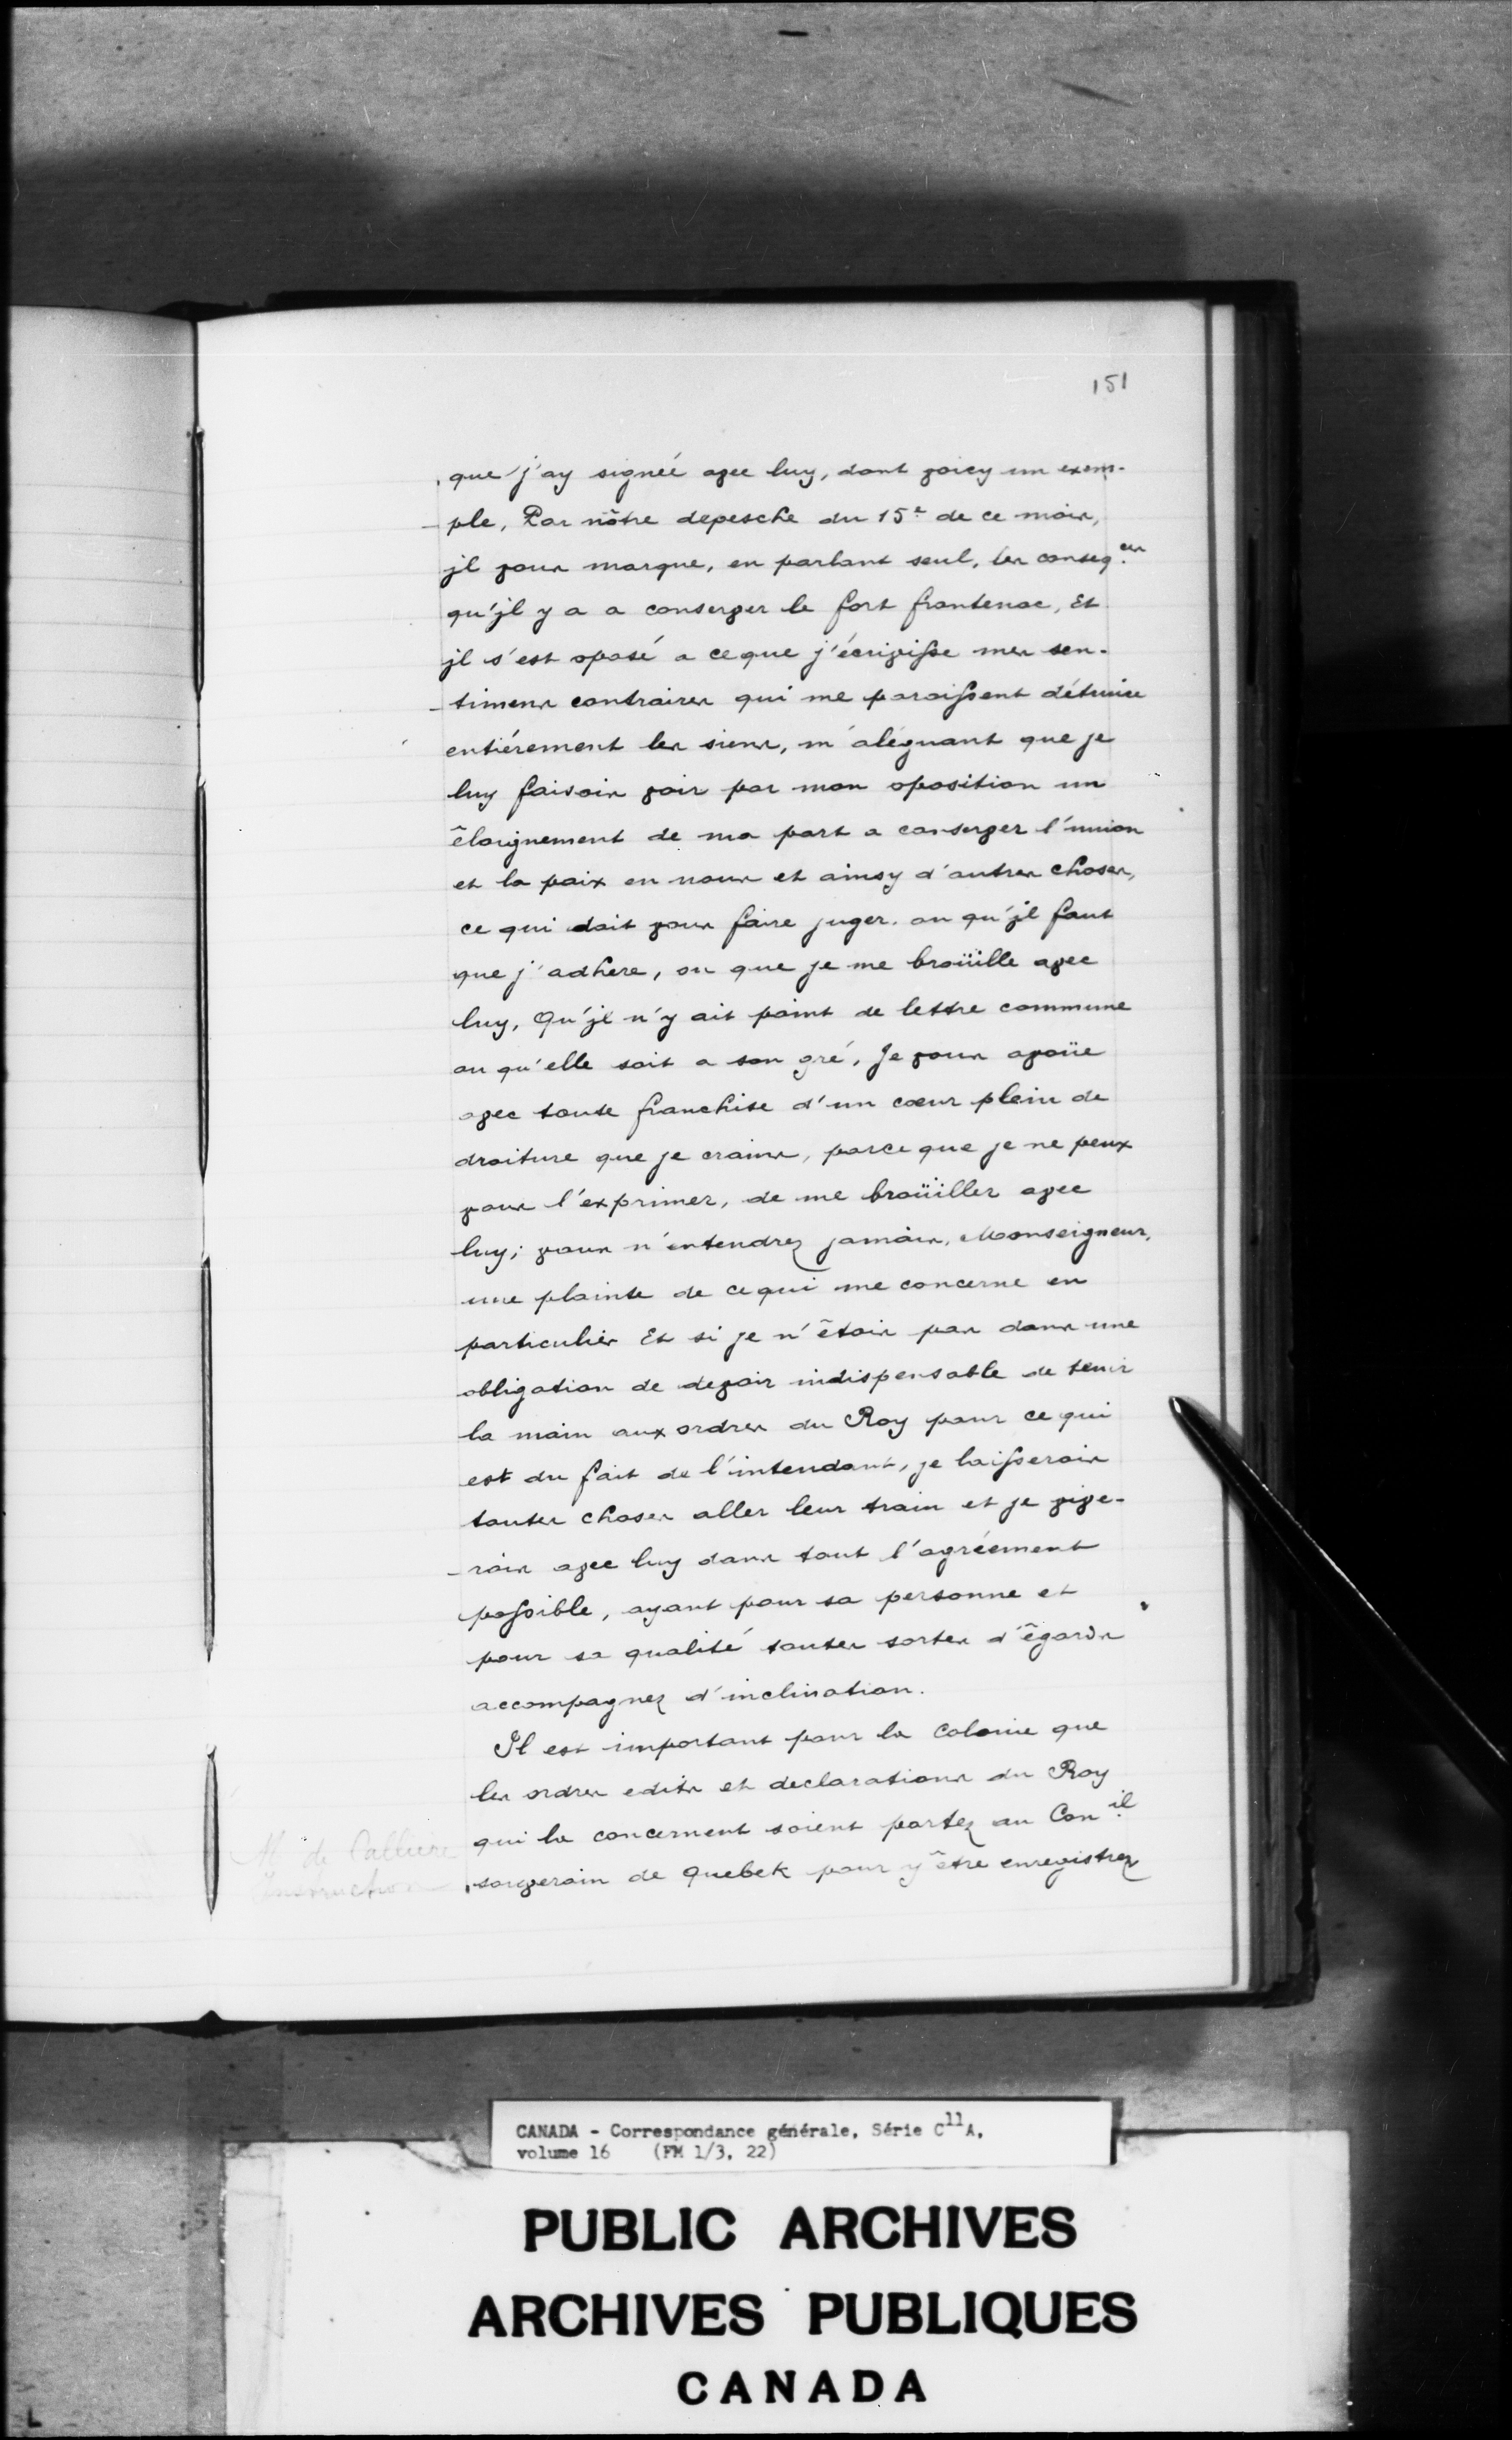 151
que j'ay signeé avec luy, dont voicy un exem-
-ple, Par nôtre depesche du 15e de ce mois,
jl vous marque, en parlant seul, les conseq.ces
qu'jl y a a conserver le fort frontenac, Et
jl s'est oposé a ce que j'écrivisse mes sen-
-timens contraires qui me paroissent détruire
entiérement les siens, m'aléguant que je
luy faisois voir par mon oposition un
êloignement de ma part a conserver l'union
et la paix en nous et ainsy d'autres choses,
ce qui doit vous faire juger. ou qu'jl faut
que j'adhere, ou que je me broüille avec
luy, Qu'jl n'y ait point de lettre commune
ou qu'elle soit a son gré, Je vous avoüe
avec toute franchise d'un cœur plein de
droiture que je crains, parce que je ne peux
vous l'exprimer, de me broüiller avec
luy; vous n'entendrez jamais, Monseigneur,
une plainte de ce qui me concerne en
particulier Et si je n'êtois pas dans une
obligation de devoir indispensable de tenir
la main aux ordres du Roy pour ce qui
est du fait de l'intendant, je laisserois
toutes choses aller leur train et je vive-
-rois avec luy dans tout l'agréement
possible, ayant pour sa personne et
pour sa qualité toutes sortes d'êgards
accompagnez d'inclination.
Il est important pour la Colonie que
les ordres edits et declarations du Roy
qui la concernent soient portez au Con.il
souverain de Quebek pour y être enregistrez
M de Calliere
Instruction
CANADA - Correspondance générale, Série C11A,
volume 16 (FM 1/3, 22)
PUBLIC ARCHIVES
ARCHIVES PUBLIQUES
CANADA
L